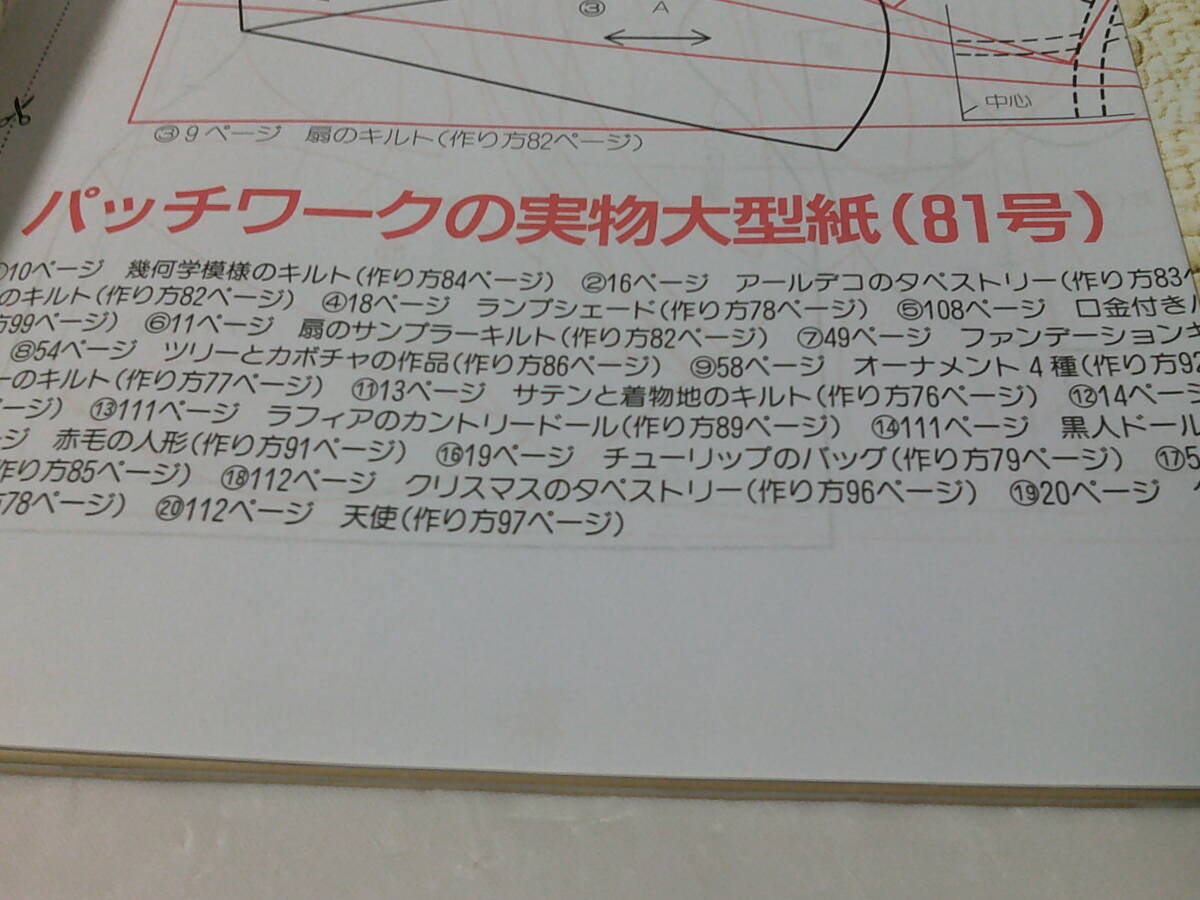 ③ A
中心
③9ページ 扇のキルト(作り方82ページ)
パッチワークの実物大型紙(81号)
10ページ 幾何学模様のキルト(作り方84ページ) ②16ページ アールデコのタペストリー(作り方83
のキルト(作り方82ページ) ④18ページ ランプシェード(作り方78ページ) ⑤108ページ 口金付き
方99ページ) ⑥11ページ 扇のサンプラーキルト(作り方82ページ) ⑦49ページ ファンデーション
⑧54ページ ツリーとカボチャの作品(作り方86ページ) ⑨58ページ オーナメント4種(作り方92
ーのキルト(作り方77ページ) ⑪13ページ サテンと着物地のキルト(作り方76ページ) ⑫14ペー
ページ) ⑬111ページ ラフィアのカントリードール(作り方89ページ) ⑭111ページ 黒人ドール
ージ 赤毛の人形(作り方91ページ) ⑯19ページ チューリップのバッグ(作り方79ページ) ⑰5
作り方85ページ) ⑱112ページ クリスマスのタペストリー(作り方96ページ) ⑲20ページ
78ページ) ⑳112ページ 天使(作り方97ページ)